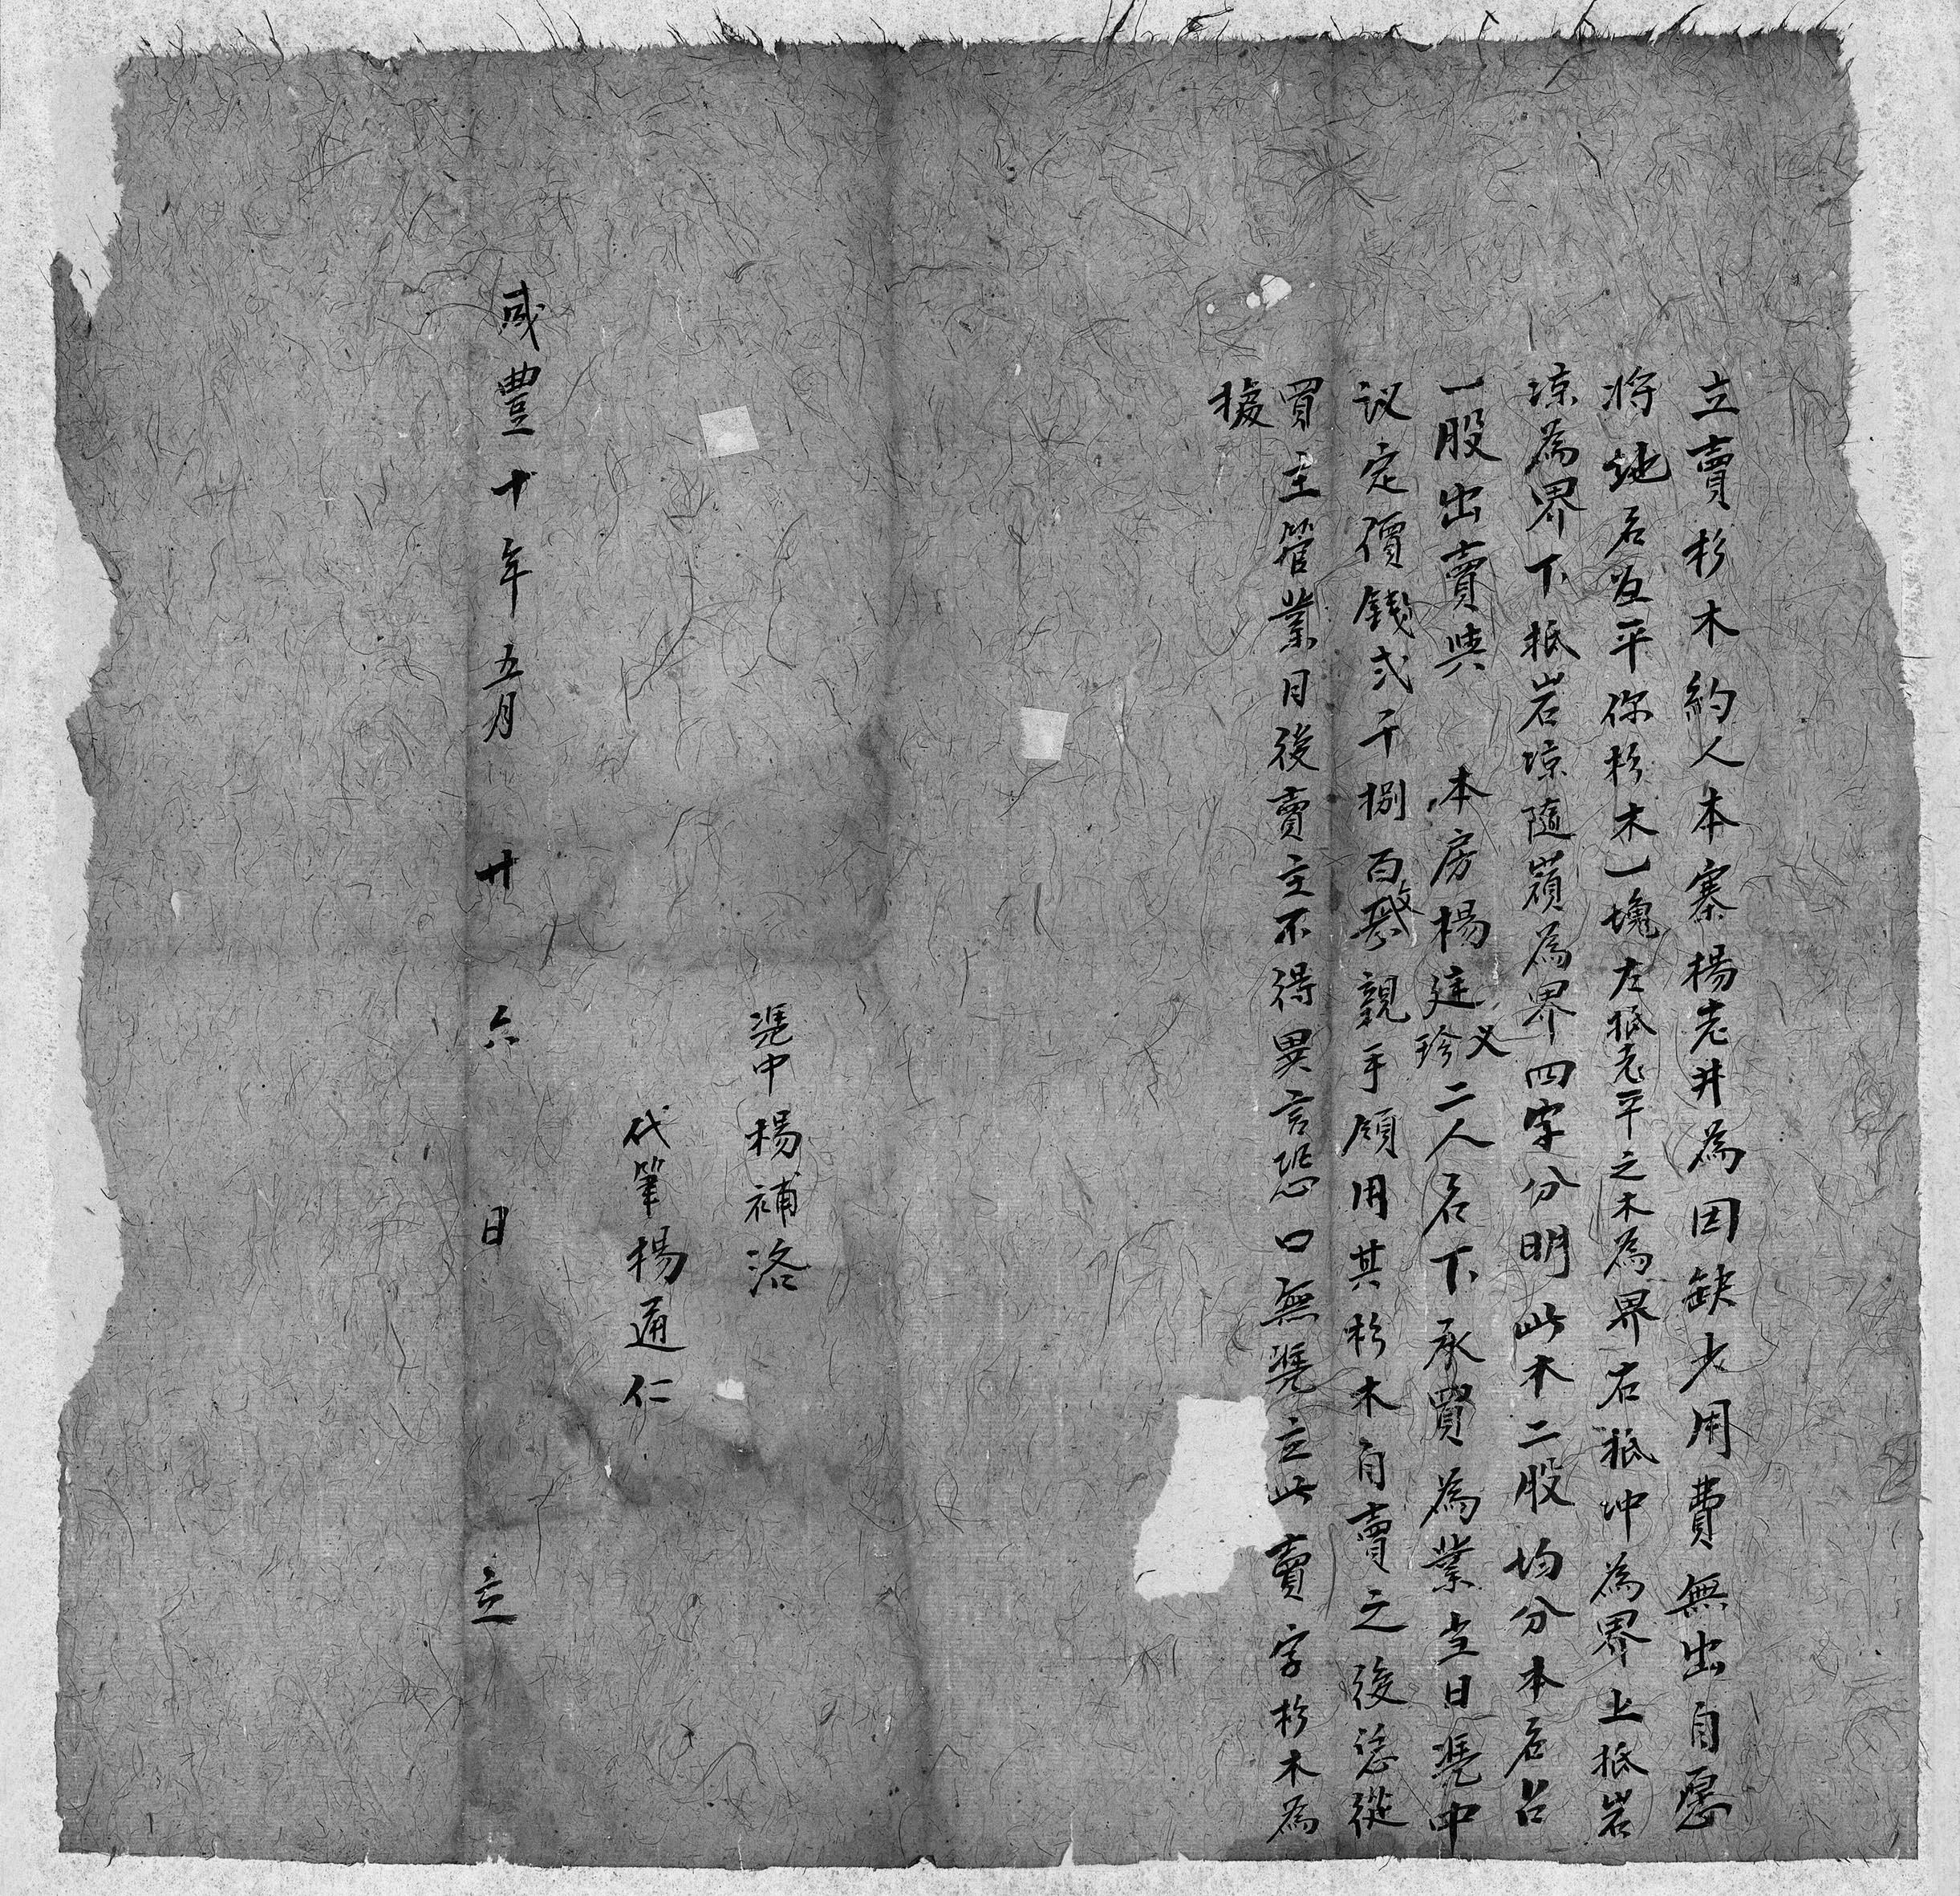 立賣杉木約人本寨楊老井為因缺少用費無出自愿
将地名並平你杉木一塊左抵老平之木為界右抵冲為界上抵岩
凉為界下抵岩凉隨嶺為界四字分明此木二股均分本名占
一股出賣與 本房楊廷义珍二人名下承買為業当日凭中
议定價錢弍千捌百文親手領用其杉木自賣之後恁從
買主管業日後賣主不得異言恐口無凴立此賣字杉木為
據
凴中楊補洛
代筆楊通仁
咸豊十年五月廿六日立